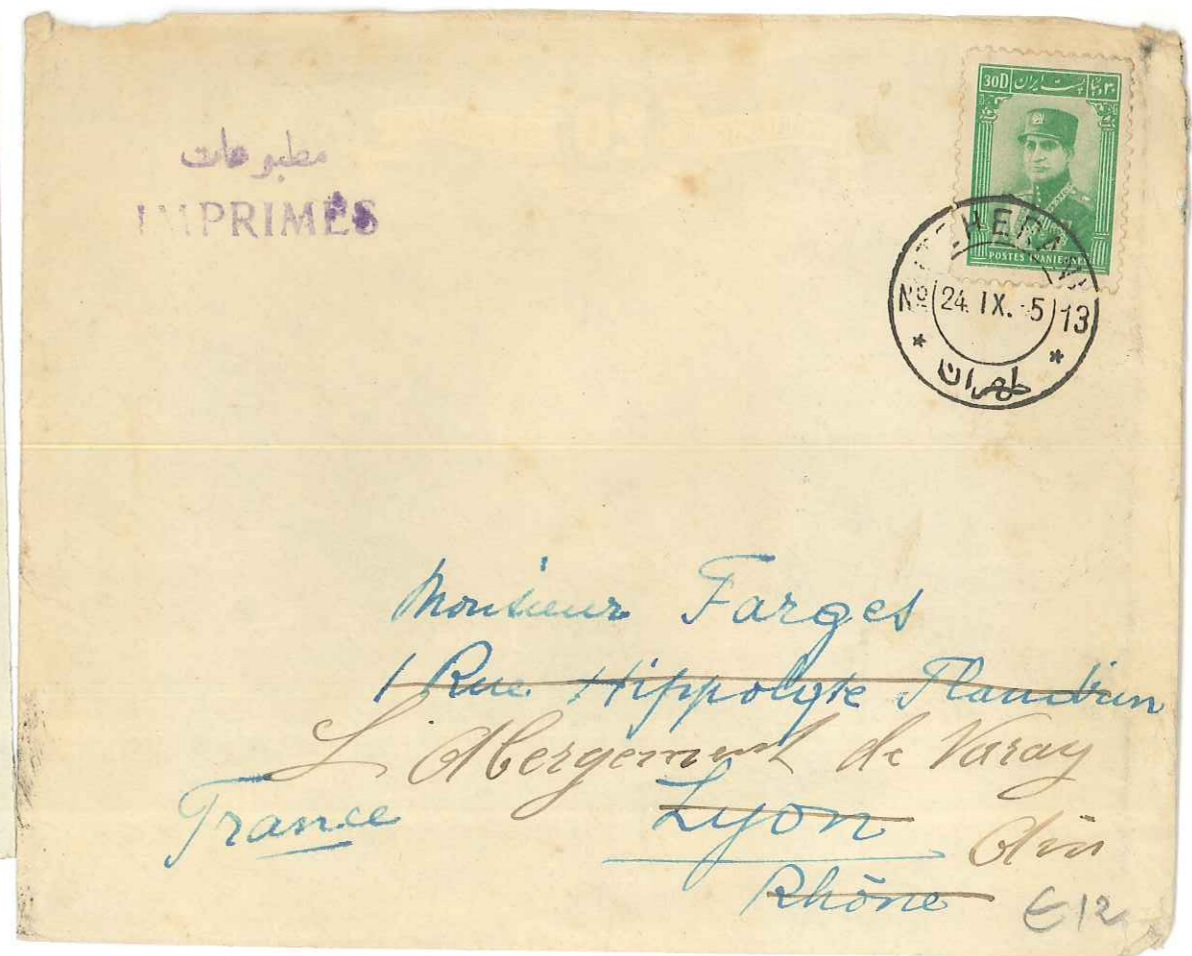 مطبوعات
IMPRIMÉS
30D پست ایران ۳۰ دینار
POSTES IRANIENNES
TEHERAN
Nº 24. IX. 5 13
طهران
Monsieur Farges
1 Rue Hippolyte Flandrin
L'Abergement de Varey
France
Lyon
Ain
Rhône
€12